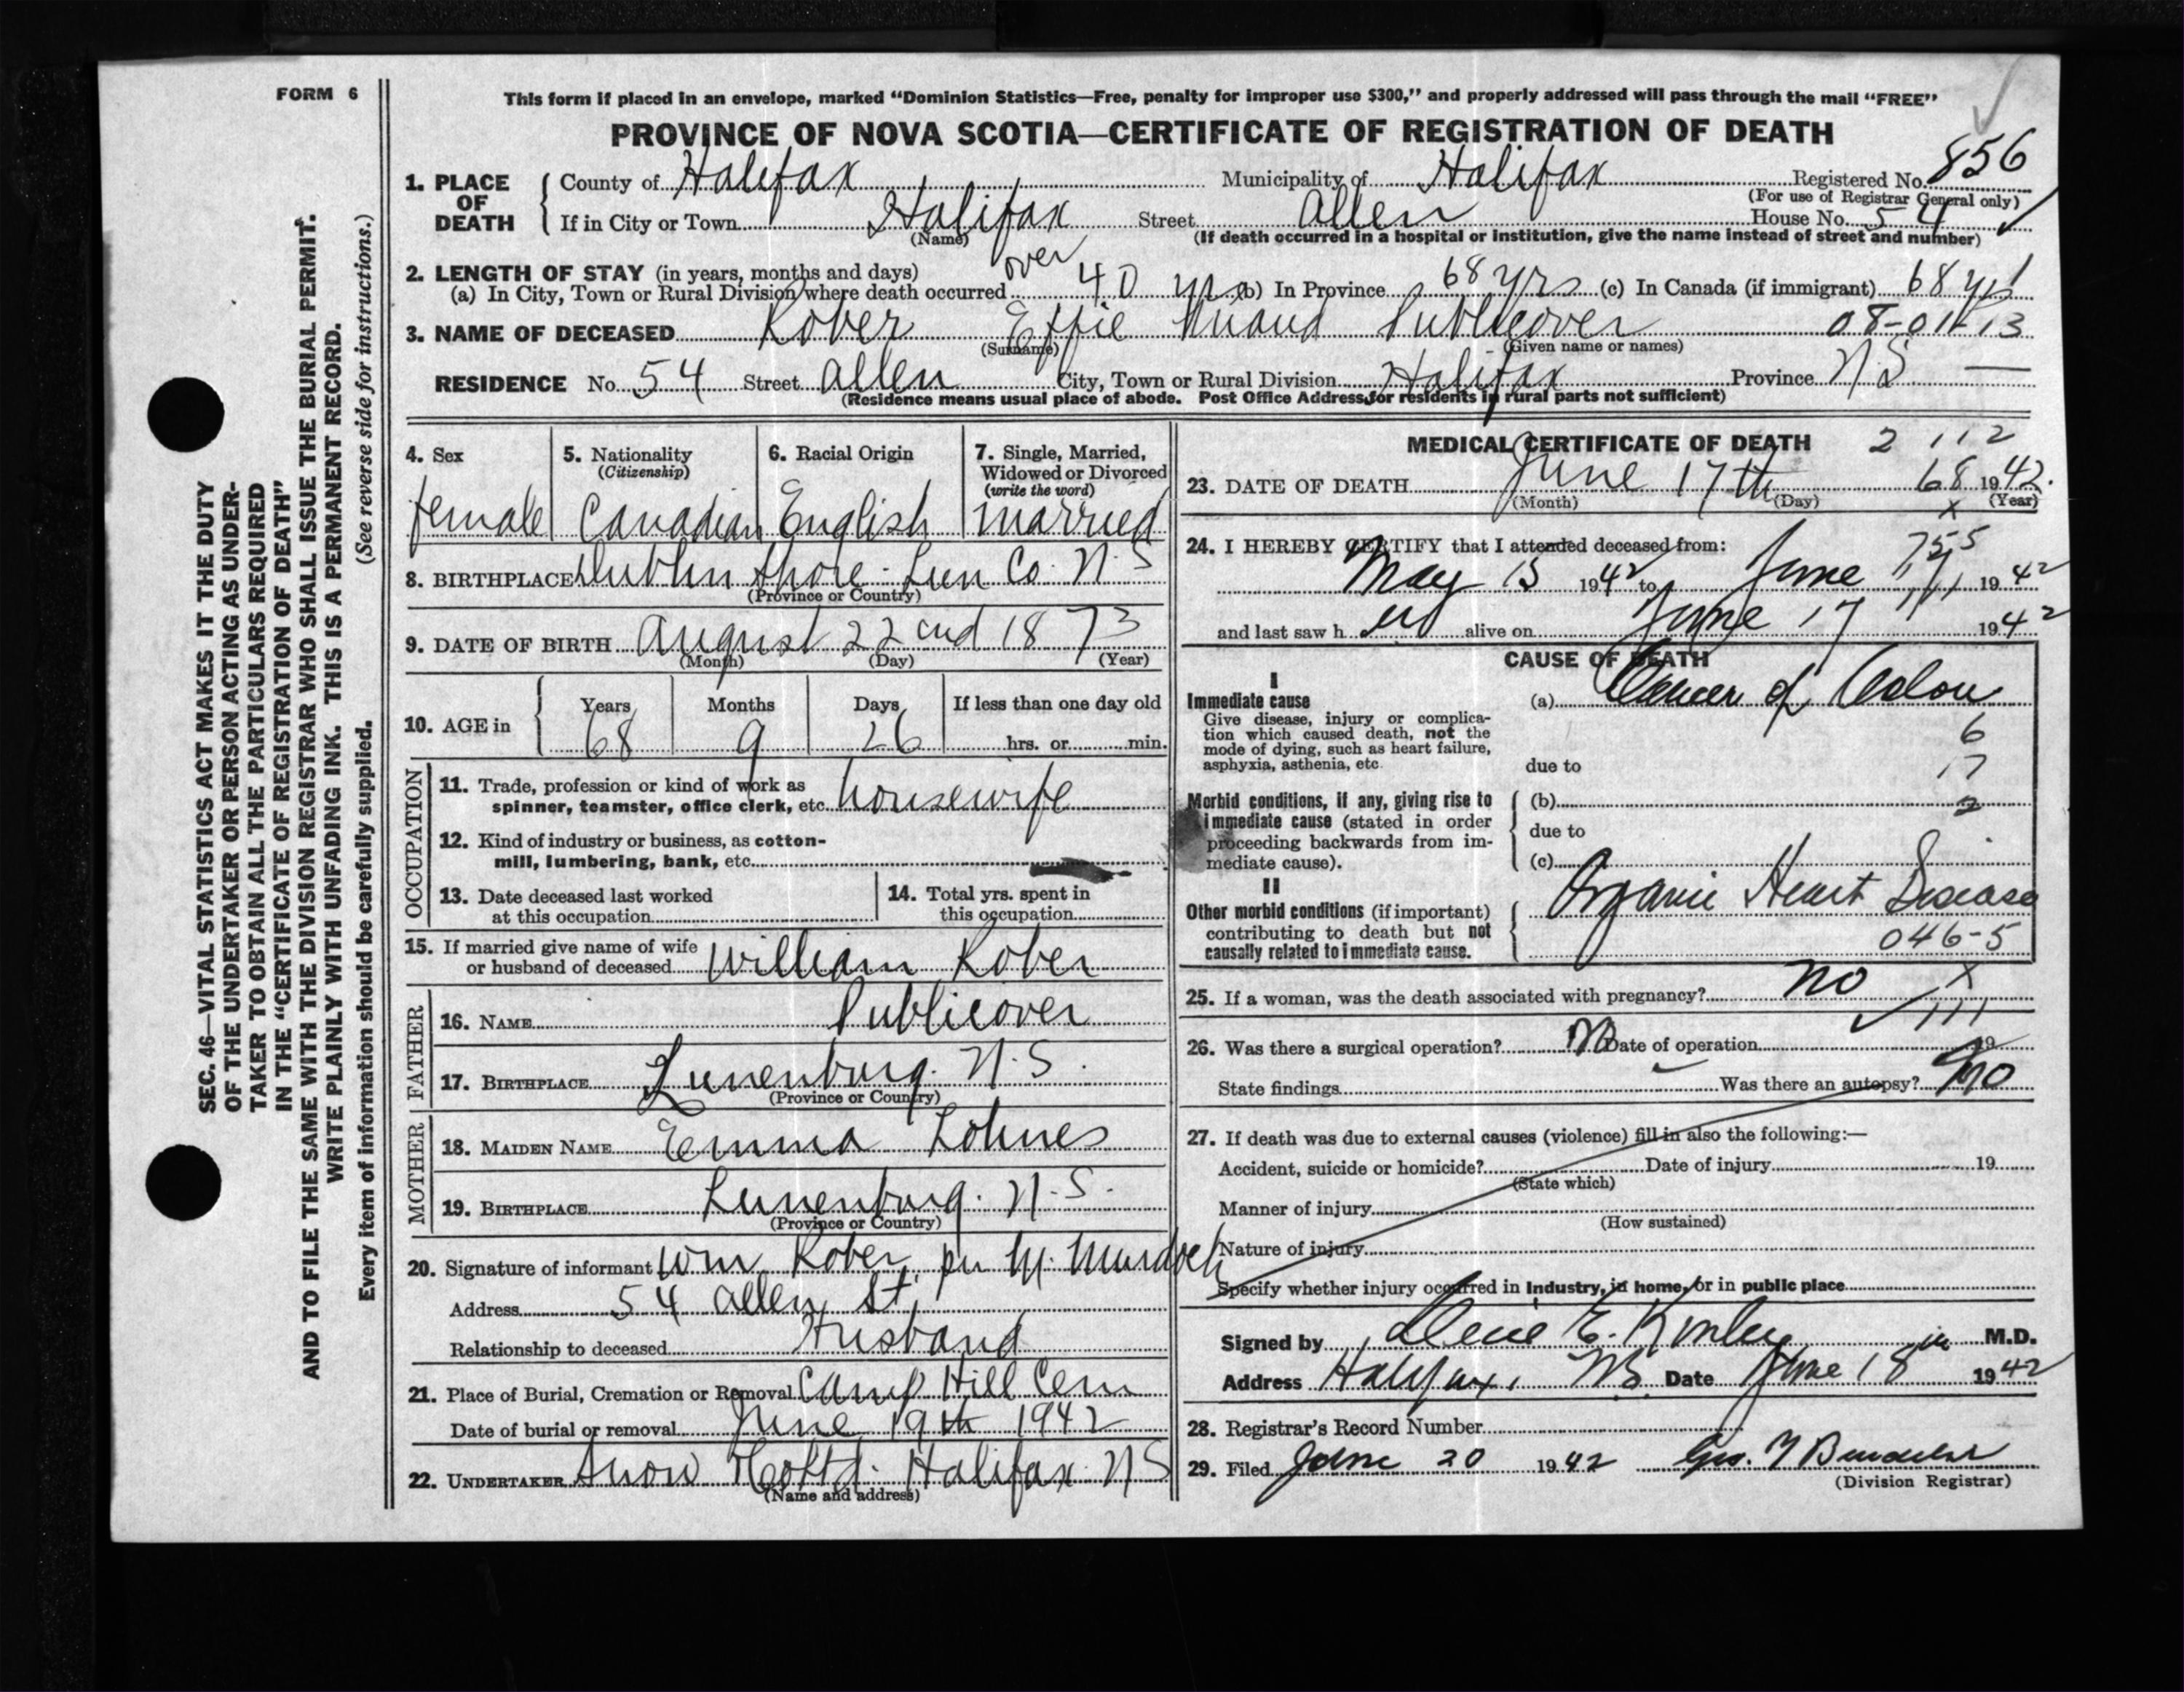 FORM 6
This form if placed in an envelope, marked “Dominion Statistics—Free, penalty for improper use $300,” and properly addressed will pass through the mail “FREE”
PROVINCE OF NOVA SCOTIA—CERTIFICATE OF REGISTRATION OF DEATH
856
1. PLACE OF DEATH County of Halifax Municipality of Halifax Registered No.
(For use of Registrar General only)
If in City or Town Halifax Street Allen House No. 54
(Name) (If death occurred in a hospital or institution, give the name instead of street and number)
2. LENGTH OF STAY (in years, months and days)
(a) In City, Town or Rural Division where death occurred over 40 yrs (b) In Province 68 yrs (c) In Canada (if immigrant) 68 yrs
3. NAME OF DECEASED Kober Effie Maud Publicover 08-01-13
(Surname) (Given name or names)
RESIDENCE No. 54 Street Allen City, Town or Rural Division Halifax Province N.S.
(Residence means usual place of abode. Post Office Address for residents in rural parts not sufficient)
4. Sex 5. Nationality (Citizenship) 6. Racial Origin 7. Single, Married, Widowed or Divorced (write the word)
female Canadian English married
8. BIRTHPLACE Dublin Shore - Lun Co. N.S
(Province or Country)
9. DATE OF BIRTH August 22cnd 1873
(Month) (Day) (Year)
10. AGE in Years Months Days If less than one day old
68 9 26 hrs. or min.
OCCUPATION
11. Trade, profession or kind of work as
spinner, teamster, office clerk, etc. housewife
12. Kind of industry or business, as cotton-
mill, lumbering, bank, etc.
13. Date deceased last worked
at this occupation
14. Total yrs. spent in
this occupation
15. If married give name of wife
or husband of deceased William Kober
FATHER
16. NAME Publicover
17. BIRTHPLACE Lunenburg. N.S.
(Province or Country)
MOTHER
18. MAIDEN NAME Emma Lohnes
19. BIRTHPLACE Lunenburg. N.S.
(Province or Country)
20. Signature of informant Wm Kober, per M. Murdoch
Address 54 Allen St,
Relationship to deceased Husband
21. Place of Burial, Cremation or Removal Camp Hill Cem
Date of burial or removal June 19th 1942
22. UNDERTAKER Snow Co Ltd. Halifax N S
(Name and address)
MEDICAL CERTIFICATE OF DEATH 2 112
23. DATE OF DEATH June 17th 68 1942.
(Month) (Day) (Year)
x
24. I HEREBY CERTIFY that I attended deceased from:
755
May 15 1942 to June 17 1942
and last saw h er alive on June 17 1942
CAUSE OF DEATH
I
Immediate cause (a) Cancer of Colon
Give disease, injury or complica-
tion which caused death, not the
mode of dying, such as heart failure,
asphyxia, asthenia, etc.
6
due to 17
Morbid conditions, if any, giving rise to
immediate cause (stated in order
proceeding backwards from im-
mediate cause).
(b) 2
due to
(c)
II
Other morbid conditions (if important)
contributing to death but not
causally related to immediate cause.
Organic Heart Disease
046-5
25. If a woman, was the death associated with pregnancy? no x
111
26. Was there a surgical operation? No Date of operation 19
State findings Was there an autopsy? No
27. If death was due to external causes (violence) fill in also the following:—
Accident, suicide or homicide? Date of injury 19
(State which)
Manner of injury
(How sustained)
Nature of injury
Specify whether injury occurred in Industry, in home, or in public place
Signed by E. M.D.
Address Halifax, N.S. Date June 18 1942
28. Registrar's Record Number
29. Filed June 20 1942 Geo.
(Division Registrar)
SEC. 46—VITAL STATISTICS ACT MAKES IT THE DUTY
OF THE UNDERTAKER OR PERSON ACTING AS UNDER-
TAKER TO OBTAIN ALL THE PARTICULARS REQUIRED
IN THE “CERTIFICATE OF REGISTRATION OF DEATH”
AND TO FILE THE SAME WITH THE DIVISION REGISTRAR WHO SHALL ISSUE THE BURIAL PERMIT.
WRITE PLAINLY WITH UNFADING INK. THIS IS A PERMANENT RECORD.
Every item of information should be carefully supplied. (See reverse side for instructions.)